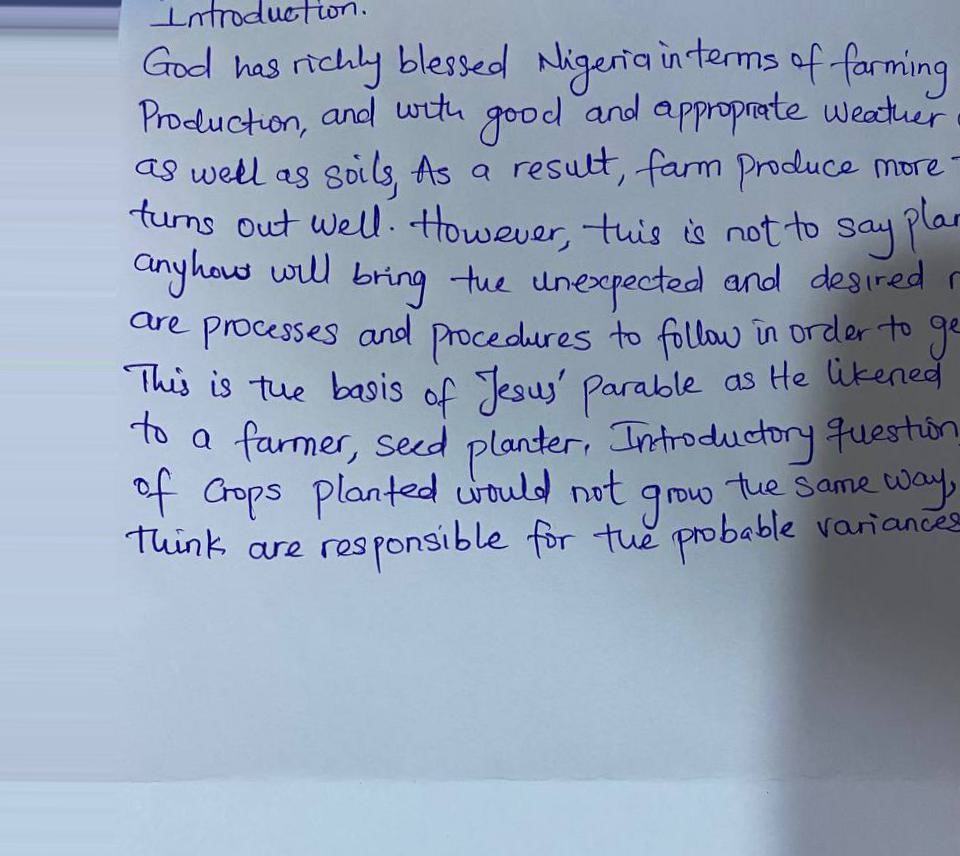 Introduction.
God has richly blessed Nigeria in terms of farming
Production, and with good and appropriate weather
as well as soils, As a result, farm produce more
turns out well. However, this is not to say
anyhow will bring the unexpected and desired
are processes and procedures to follow in order to
This is the basis of Jesus' Parable as He likened
to a farmer, seed planter. Introductory question
of Crops planted would not grow the same way,
think are responsible for the probable variances